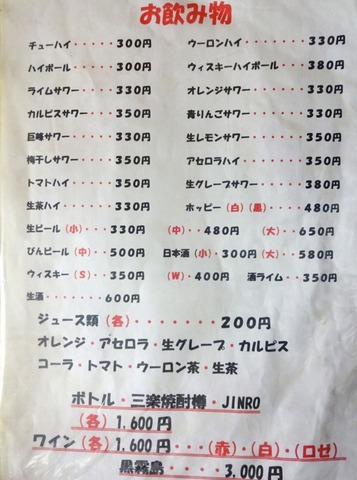 お飲み物
チューハイ・・・・・・300円 ウーロンハイ・・・・・・330円
ハイボール・・・・・・300円 ウィスキーハイボール・・380円
ライムサワー・・・・・330円 オレンジサワー・・・・・330円
カルピスサワー・・・・350円 青りんごサワー・・・・・330円
巨峰サワー・・・・・・330円 生レモンサワー・・・・・350円
梅干しサワー・・・・・350円 アセロラハイ・・・・・・350円
トマトハイ・・・・・・350円 生グレープサワー・・・・380円
生茶ハイ・・・・・・・330円 ホッピー(白)(黒)・・・・480円
生ビール(小)・・・330円 (中)・・480円 (大)・・650円
びんビール(中)・・500円 日本酒(小)・300円(大)・・580円
ウィスキー(S)・・350円 (W)・400円 酒ライム・・350円
生酒・・・・・・・600円
ジュース類(各)・・・・・・・200円
オレンジ・アセロラ・生グレープ・カルピス
コーラ・トマト・ウーロン茶・生茶
ボトル・三楽焼酎樽・JINRO
(各)1.600円
ワイン(各)1.600円・・・(赤)・(白)・(ロゼ)
黒霧島・・・・3.000円